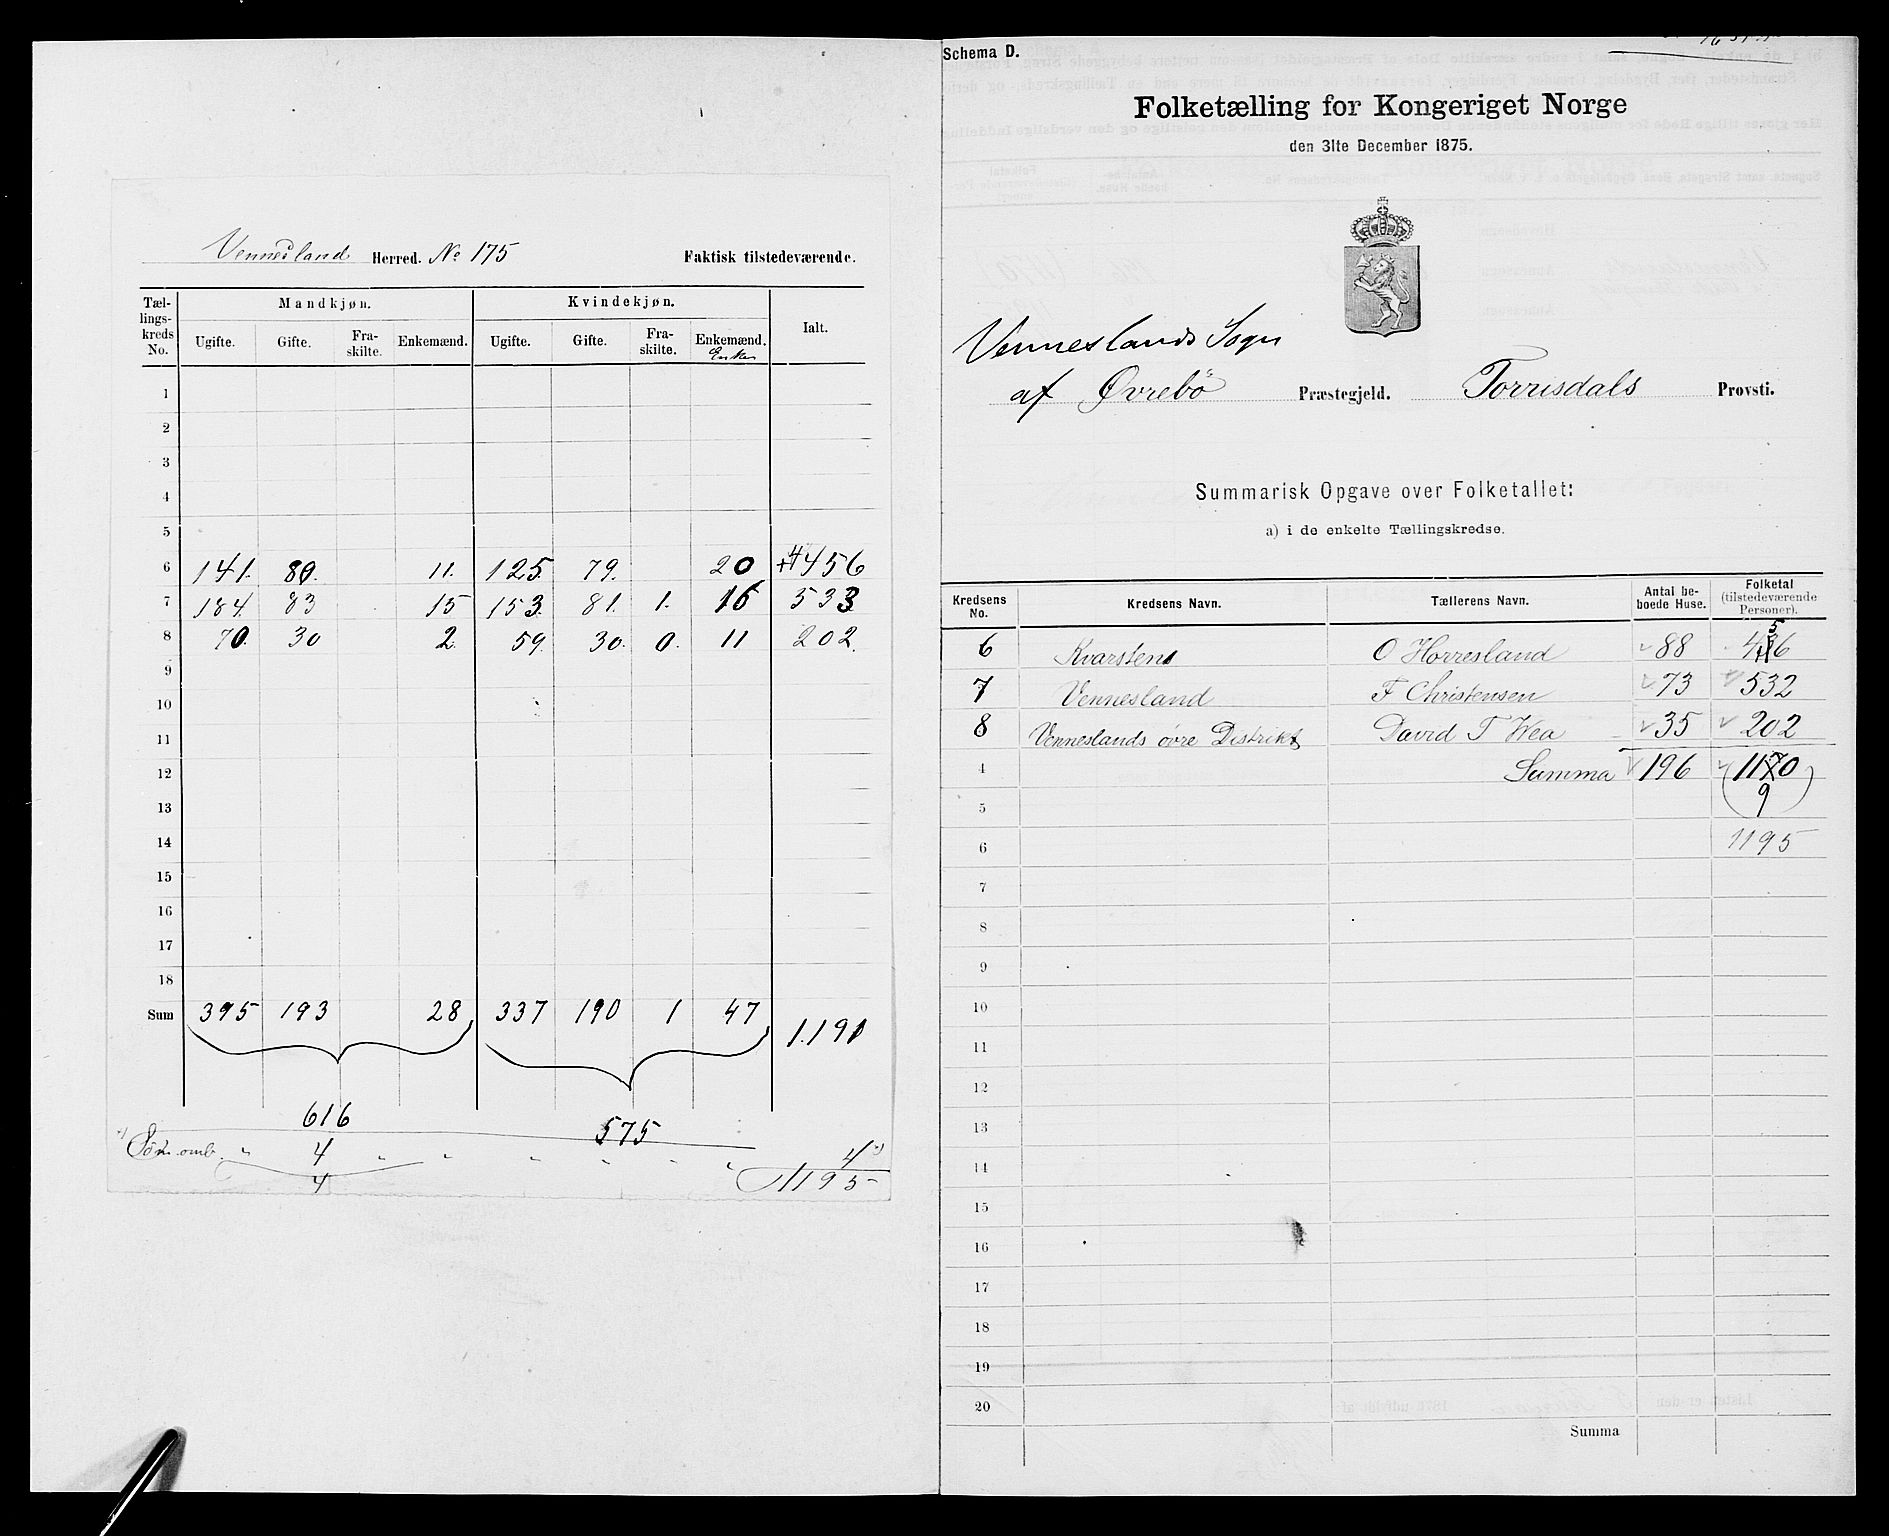 Vennesland Herred. No 175 Faktisk tilstedeværende.
Tællingskreds No. Mandkjøn. Kvindekjøn. Ialt.
Ugifte. Gifte. Fraskilte. Enkemænd. Ugifte. Gifte. Fraskilte. Enkemænd.
Enker
1
2
3
4
5
6 141. 80. 11. 125. 79. 20 456
7 184. 83 15 153. 81. 1. 16 533
8 70. 30 2. 59. 30. 0. 11 202.
9
10
11
12
13
14
15
16
17
18
Sum 395 193 28 337 190 1 47 1.191
616 575
4 " " " " " " 4
4 1195
Schema D.
Folketælling for Kongeriget Norge
den 31te December 1875.
Venneslands Sogn
af Øvrebö Præstegjeld. Torrisdals Provsti.
Summarisk Opgave over Folketallet:
a) i de enkelte Tællingskredse.
Kredsens No. Kredsens Navn. Tællerens Navn. Antal beboede Huse. Folketal (tilstedeværende Personer).
6 Kvarstens O Horresland 88 456
7 Vennesland F Christensen 73 532
8 Venneslands øvre Distrikt David T Wea 35 202
4 Summa 196 1190
5 9
6 1195
7
8
9
10
11
12
13
14
15
16
17
18
19
20
Summa